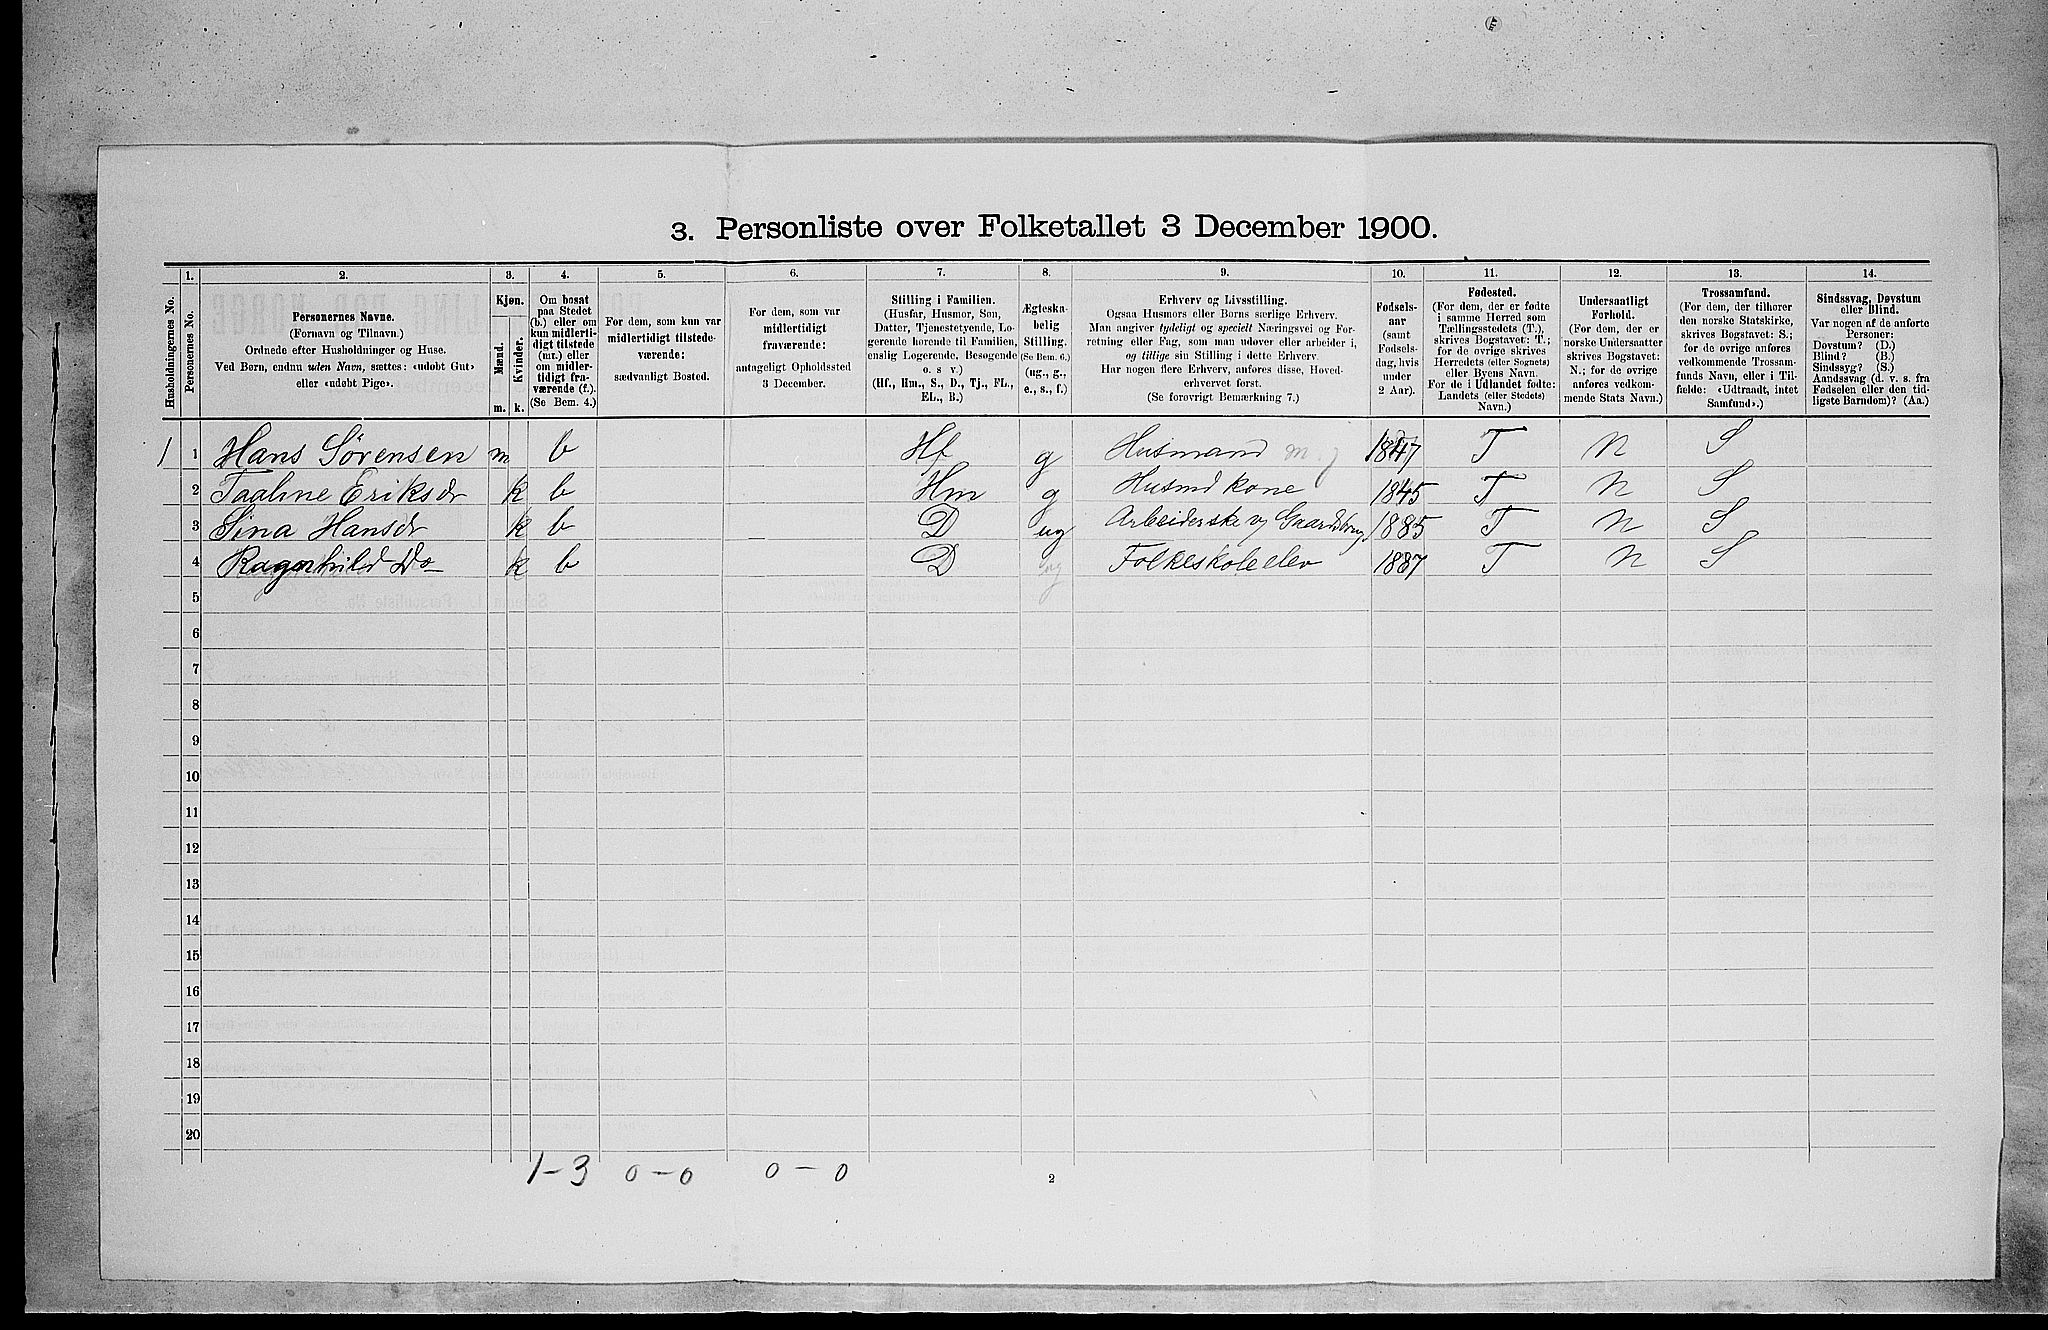 3. Personliste over Folketallet 3 December 1900.
1. 2. 3. 4. 5. 6. 7. 8. 9. 10. 11. 12. 13. 14.
Husholdningernes No.
Personernes No.
Personernes Navne.
(Fornavn og Tilnavn.)
Ordnede efter Husholdninger og Huse.
Ved Børn, endnu uden Navn, sættes: «udøbt Gut»
eller «udøbt Pige».
Kjøn.
Mænd.
Kvinder.
m. k.
Om bosat
paa Stedet
(b.) eller om
kun midlerti-
digt tilstede
(mt.) eller
om midler-
tidigt fra-
værende (f.).
(Se Bem. 4.)
For dem, som kun var
midlertidigt tilstede-
værende:
sædvanligt Bosted.
For dem, som var
midlertidigt
fraværende:
antageligt Opholdssted
3 December.
Stilling i Familien.
(Husfar, Husmor, Søn,
Datter, Tjenestetyende, Lo-
gerende hørende til Familien,
enslig Logerende, Besøgende
o. s v.)
(Hf., Hm., S., D., Tj., FL.,
EL., B.)
Ægteska-
belig
Stilling.
(Se Bem. 6.)
(ug., g.,
e., s., f.)
Erhverv og Livsstilling.
Ogsaa Husmors eller Børns særlige Erhverv.
Man angiver tydeligt og specielt Næringsvei og For-
retning eller Fag, som man udøver eller arbeider i,
og tillige sin Stilling i dette Erhverv.
Har nogen flere Erhverv, anføres disse, Hoved-
erhvervet først.
(Se forøvrigt Bemærkning 7.)
Fødsels-
aar
(samt
Fødsels-
dag, hvis
under
2 Aar).
Fødested.
(For dem, der er fødte
i samme Herred som
Tællingsstedets (T.),
skrives Bogstavet: T.;
for de øvrige skrives
Herredets (eller Sognets)
eller Byens Navn.
For de i Udlandet fødte:
Landets (eller Stedets)
Navn.)
Undersaatligt
Forhold.
(For dem, der er
norske Undersaatter
skrives Bogstavet:
N.; for de øvrige
anføres vedkom-
mende Stats Navn.)
Trossamfund.
(For dem, der tilhører
den norske Statskirke,
skrives Bogstavet: S.;
for de øvrige anføres
vedkommende Trossam-
funds Navn, eller i Til-
fælde: «Udtraadt, intet
Samfund».)
Sindssvag, Døvstum
eller Blind.
Var nogen af de anførte
Personer:
Døvstum? (D.)
Blind? (B.)
Sindssyg? (S.)
Aandssvag (d. v. s. fra
Fødselen eller den tid-
ligste Barndom)? (Aa.)
1 1 Hans Sørensen m b Hf g Husmand m. j 1847 T N S
2 Taaline Eriksdr k b Hm g Husmdkone 1845 T N S
3 Sina Hansdr k b D ug Arbeiderske v/ Gaardsbrug 1885 T N S
4 Ragnhild Do k b D ug Folkeskoleelev 1887 T N S
5
6
7
8
9
10
11
12
13
14
15
16
17
18
19
20
1–3 0–0 0–0
2